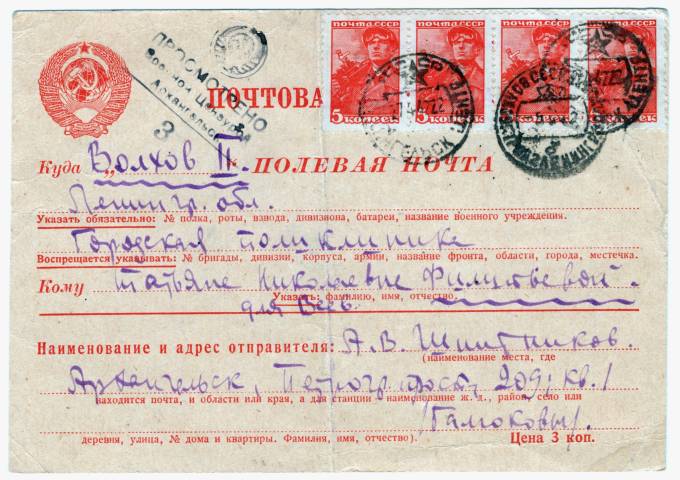 ПОЧТА СССР ПОЧТА СССР ПОЧТА СССР ПОЧТА СССР
5 КОПЕЕК 5 КОПЕЕК 5 КОПЕЕК КОПЕЕК
ПРОСМОТРЕНО
Военной Цензурой
Архангельск
3
ПОЧТОВА
Куда „Волхов II“. ПОЛЕВАЯ ПОЧТА
Ленингр. обл.
Указать обязательно: № полка, роты, взвода, дивизиона, батареи, название военного учреждения.
Городская поликлинике
Воспрещается указывать: № бригады, дивизии, корпуса, армии, название фронта, области, города, местечка.
Кому Татьяне Николаевне
Указать: фамилию, имя, отчество.
для
Наименование и адрес отправителя: А.В. Шпитников.
(наименование места, где
Архангельск, 209, кв. 1
находится почта, и области или края, а для станции – наименование ж. д., район, село или
деревня, улица, № дома и квартиры. Фамилия, имя, отчество).
Цена 3 коп.